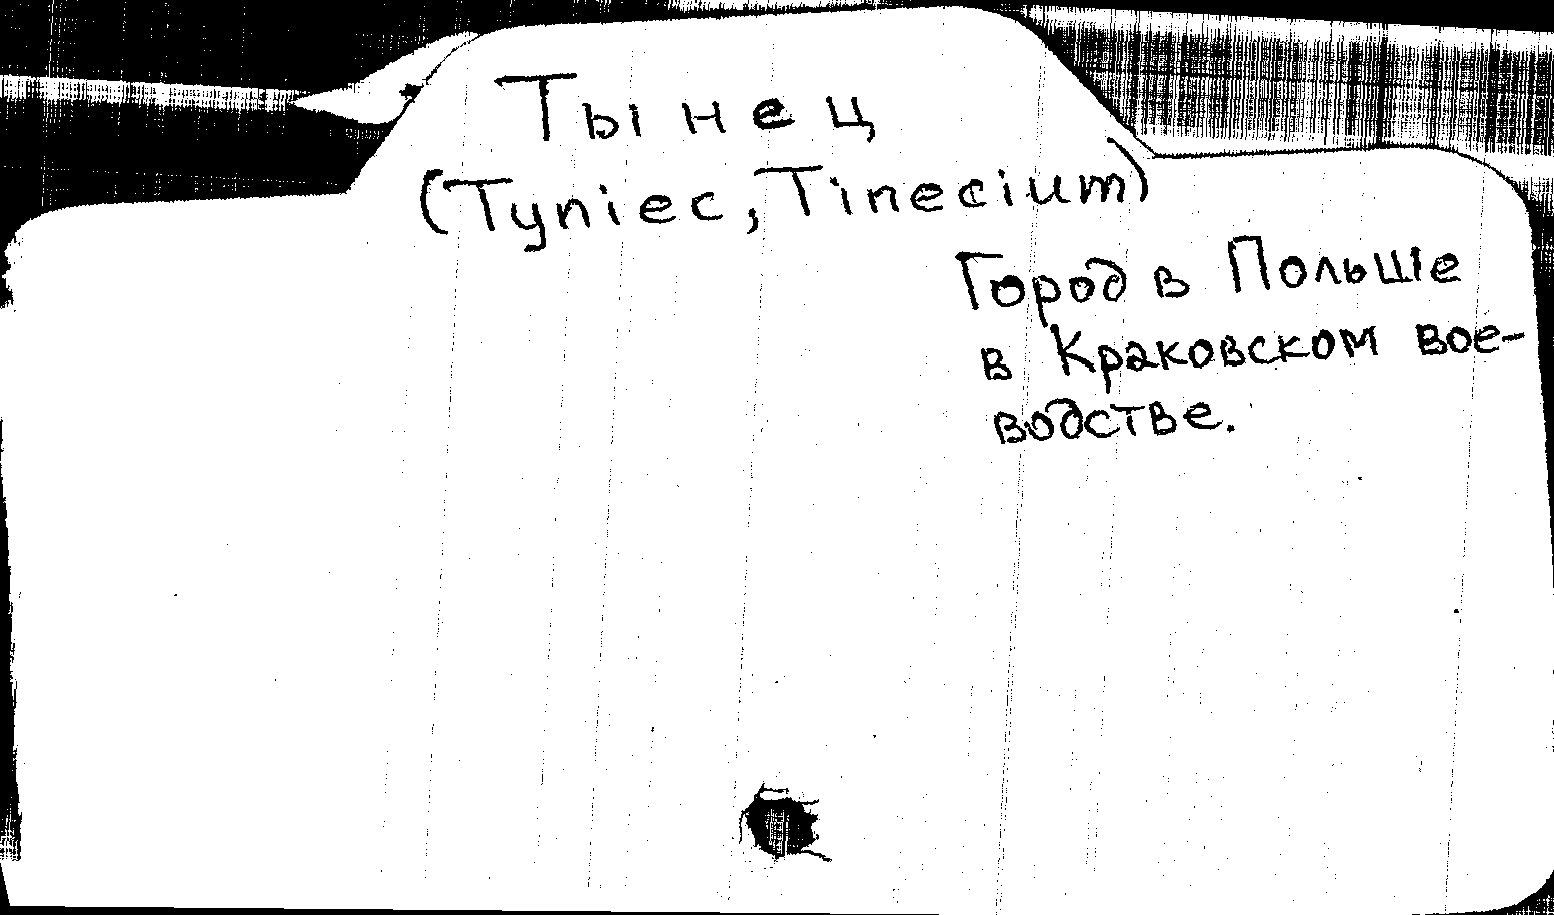 Тынец
(Tyniec, Tinecium)
Город в Польше
в Краковском вое-
водстве.